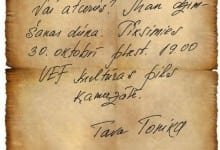 Vai atceries? Man dzim-
šanas diena. Tiksimies
30. oktobrī plkst. 19.00
VEF kultūras pils
Kamerzālē.
Tava Tonika